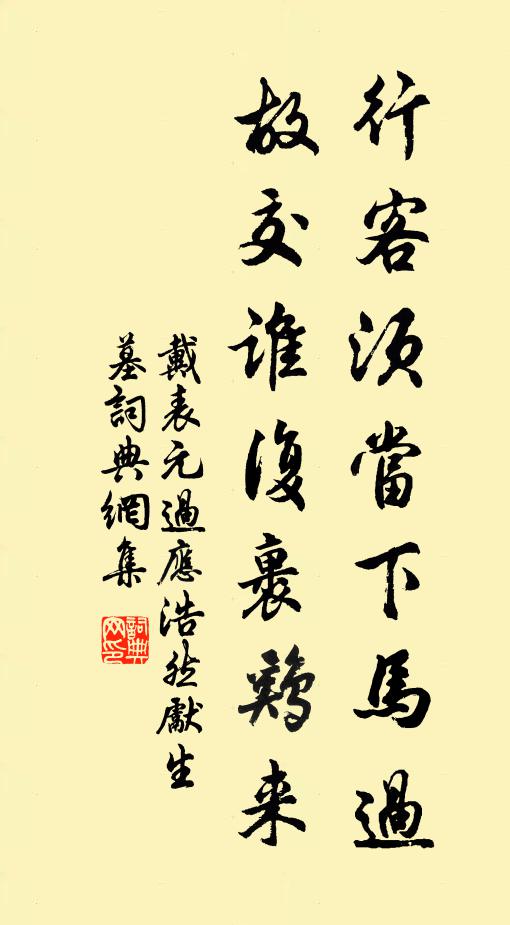 行客須當下馬過
故交誰復裹鷄来
戴表元過應浩然獻生
墓詞典網集
詞典網印